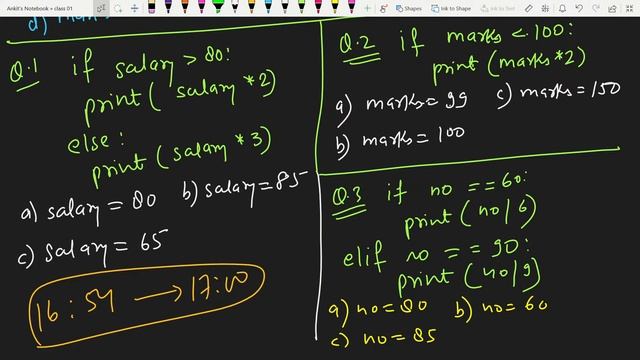 Ankit's Notebook » class 01
Shapes
Ink to Shape
Ink to Text
d)
Q.1 if salary > 80:
print( salary *2)
else:
print( salary *3)
a) salary = 80 b) salary = 85
c) salary = 65
16:54 → 17:00
Q.2 if marks < 100:
print(marks*2)
a) marks = 99 c) marks = 150
b) marks = 100
Q.3 if no == 60:
print( no/6)
elif no == 90:
print(no/9)
a) no = 80 b) no = 60
c) no = 85